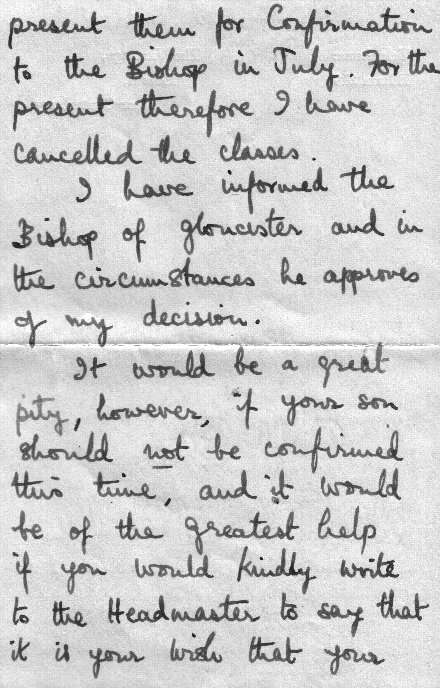 present them for Confirmation
to the Bishop in July. For the
present therefore I have
cancelled the classes.
I have informed the
Bishop of gloucister and in
the circumstances he approves
of my decision.
It would be a great
pity, however, if your son
should not be confirmed
this time, and it would
be of the greatest help
if you would kindly write
to the Headmaster to say that
it is your wish that your